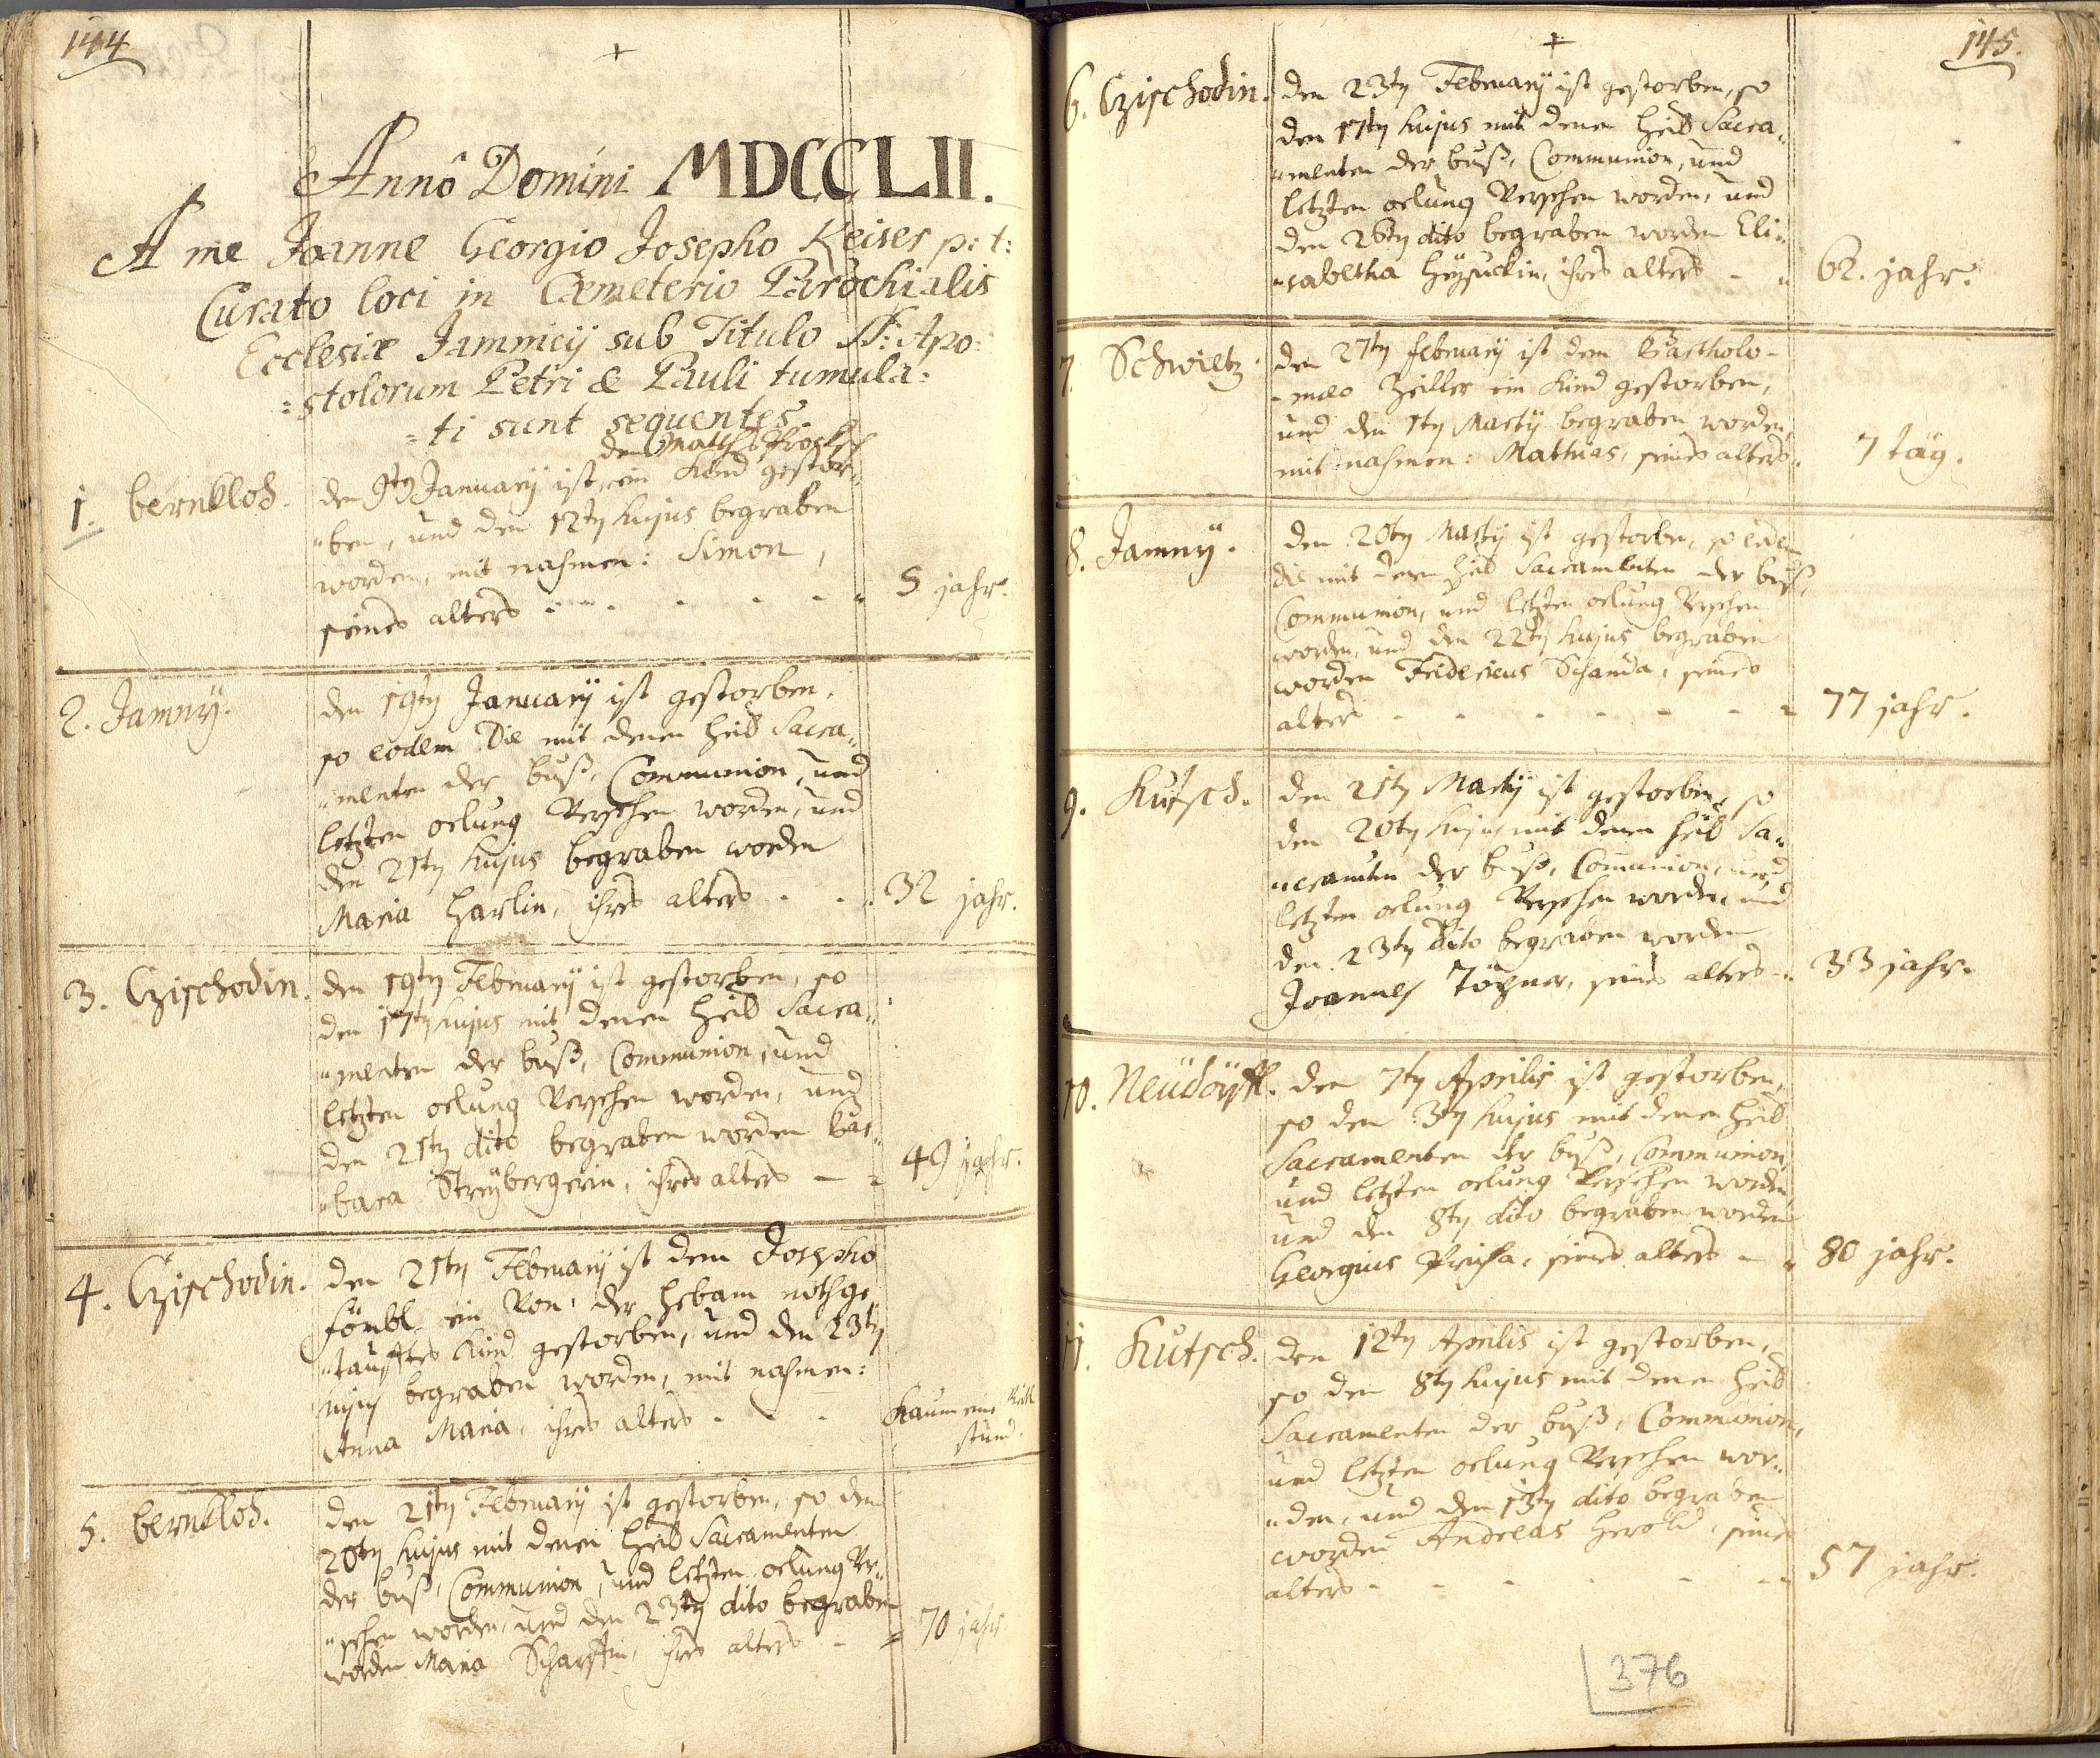 144
+
Annô Domini MDCCLII.
A me Joanne Georgio Josepho Keiser p: t:
Curato loci in Cæmeterio Parochialis
Ecclesiæ Jamnicÿ sub Titulo SS: Apo:
:stolorum Petri & Pauli tumula:
:ti sunt sequentes.
dem Matth:
1. bernkloh. den 9ty Januarÿ ist ein Kind gestor„
„ben, und den 12ty hujus begraben
worden, mit nahmen: Simon,
seines alters - - - - 5 jahr.
2. Jamnÿ. den 19ty Januarÿ ist gestorben,
so eodem Die mit denen heil Sacra„
„menten der buß, Communion, und
letzten oelung Versehen worden, und
den 21ty hujus begraben worden
Maria Harlin, ihres alters - - 32 jahr.
3. Czischodin. den 19ty Februarÿ ist gestorben, so
den 17ty hujus mit denen heil Sacra„
„menten der buß, Communion, und
letzten oelung Versehen worden, und
den 21ty dito begraben worden bar„
„bara Streÿbergerin, ihres alters - 49 jahr.
4. Czischodin. den 21ty Februarÿ ist dem Josepho
ein Von der hebam nothge„
„taufftes Kind gestorben, und den 23ty
hujus begraben worden, mit nahmen:
Anna Maria, ihres alters - - - Kaum eine
stund.
5. bernkloh. den 21ty Februarÿ ist gestorben, so den
20ty hujus mit denen heil Sacramenten
der buß, Communion, und letzten oelung Ve„
„sehen worden, und den 23ty dito begraben
worden Maria Scharffin, ihres alters - 70 jahr
145.
+
6. Czischodin. den 23ty Februarÿ ist gestorben, so
den 17ty hujus mit denen heil Sacra„
„menten der buß, Communion, und
letzten oelung Versehen worden, und
den 26ty dito begraben worden Eli„
„sabetha ihres alters - - 62. jahr.
7. Schwietz. den 27ty februarÿ ist dem Bartholo-
-mæo Zeiller ein Kind gestorben,
und den 1ty Martÿ begraben worden,
mit nahmen: Mathias, seines alters. 7 täg.
8. Jamnÿ. den 20ty Martÿ ist gestorben, so eodem
die mit denen heil Sacramenten der buß,
Communion, und letzten oelung Versehen
worden, und den 22ty hujus begraben
worden Fridericus Schanda, seines
alters - - - - - - 77 jahr.
9. Kutsch. den 21ty Martÿ ist gestorben, so
den 20ty hujus mit denen heil Sa„
„cramenten der buß, Communion, und
letzten oelung Versehen worden, und
den 23ty dito begraben worden
Joannes seines alters - 33 jahr.
10. Neüdörffl. den 7ty Aprilis ist gestorben,
so den 3ty hujus mit denen heil
Sacramenten der buß, Communion,
und letzten oelung Versehen worden,
und den 8ty dito begraben worden
Georgius seines alters - 80 jahr.
11. Kutsch. den 12ty Aprilis ist gestorben,
so den 8ty hujus mit denen heil
Sacramenten der buß, Communion,
und letzten oelung Versehen wor„
„den, und den 13ty dito begraben
worden Andreas Herold, seines
alters - - - - - 57 jahr.
376